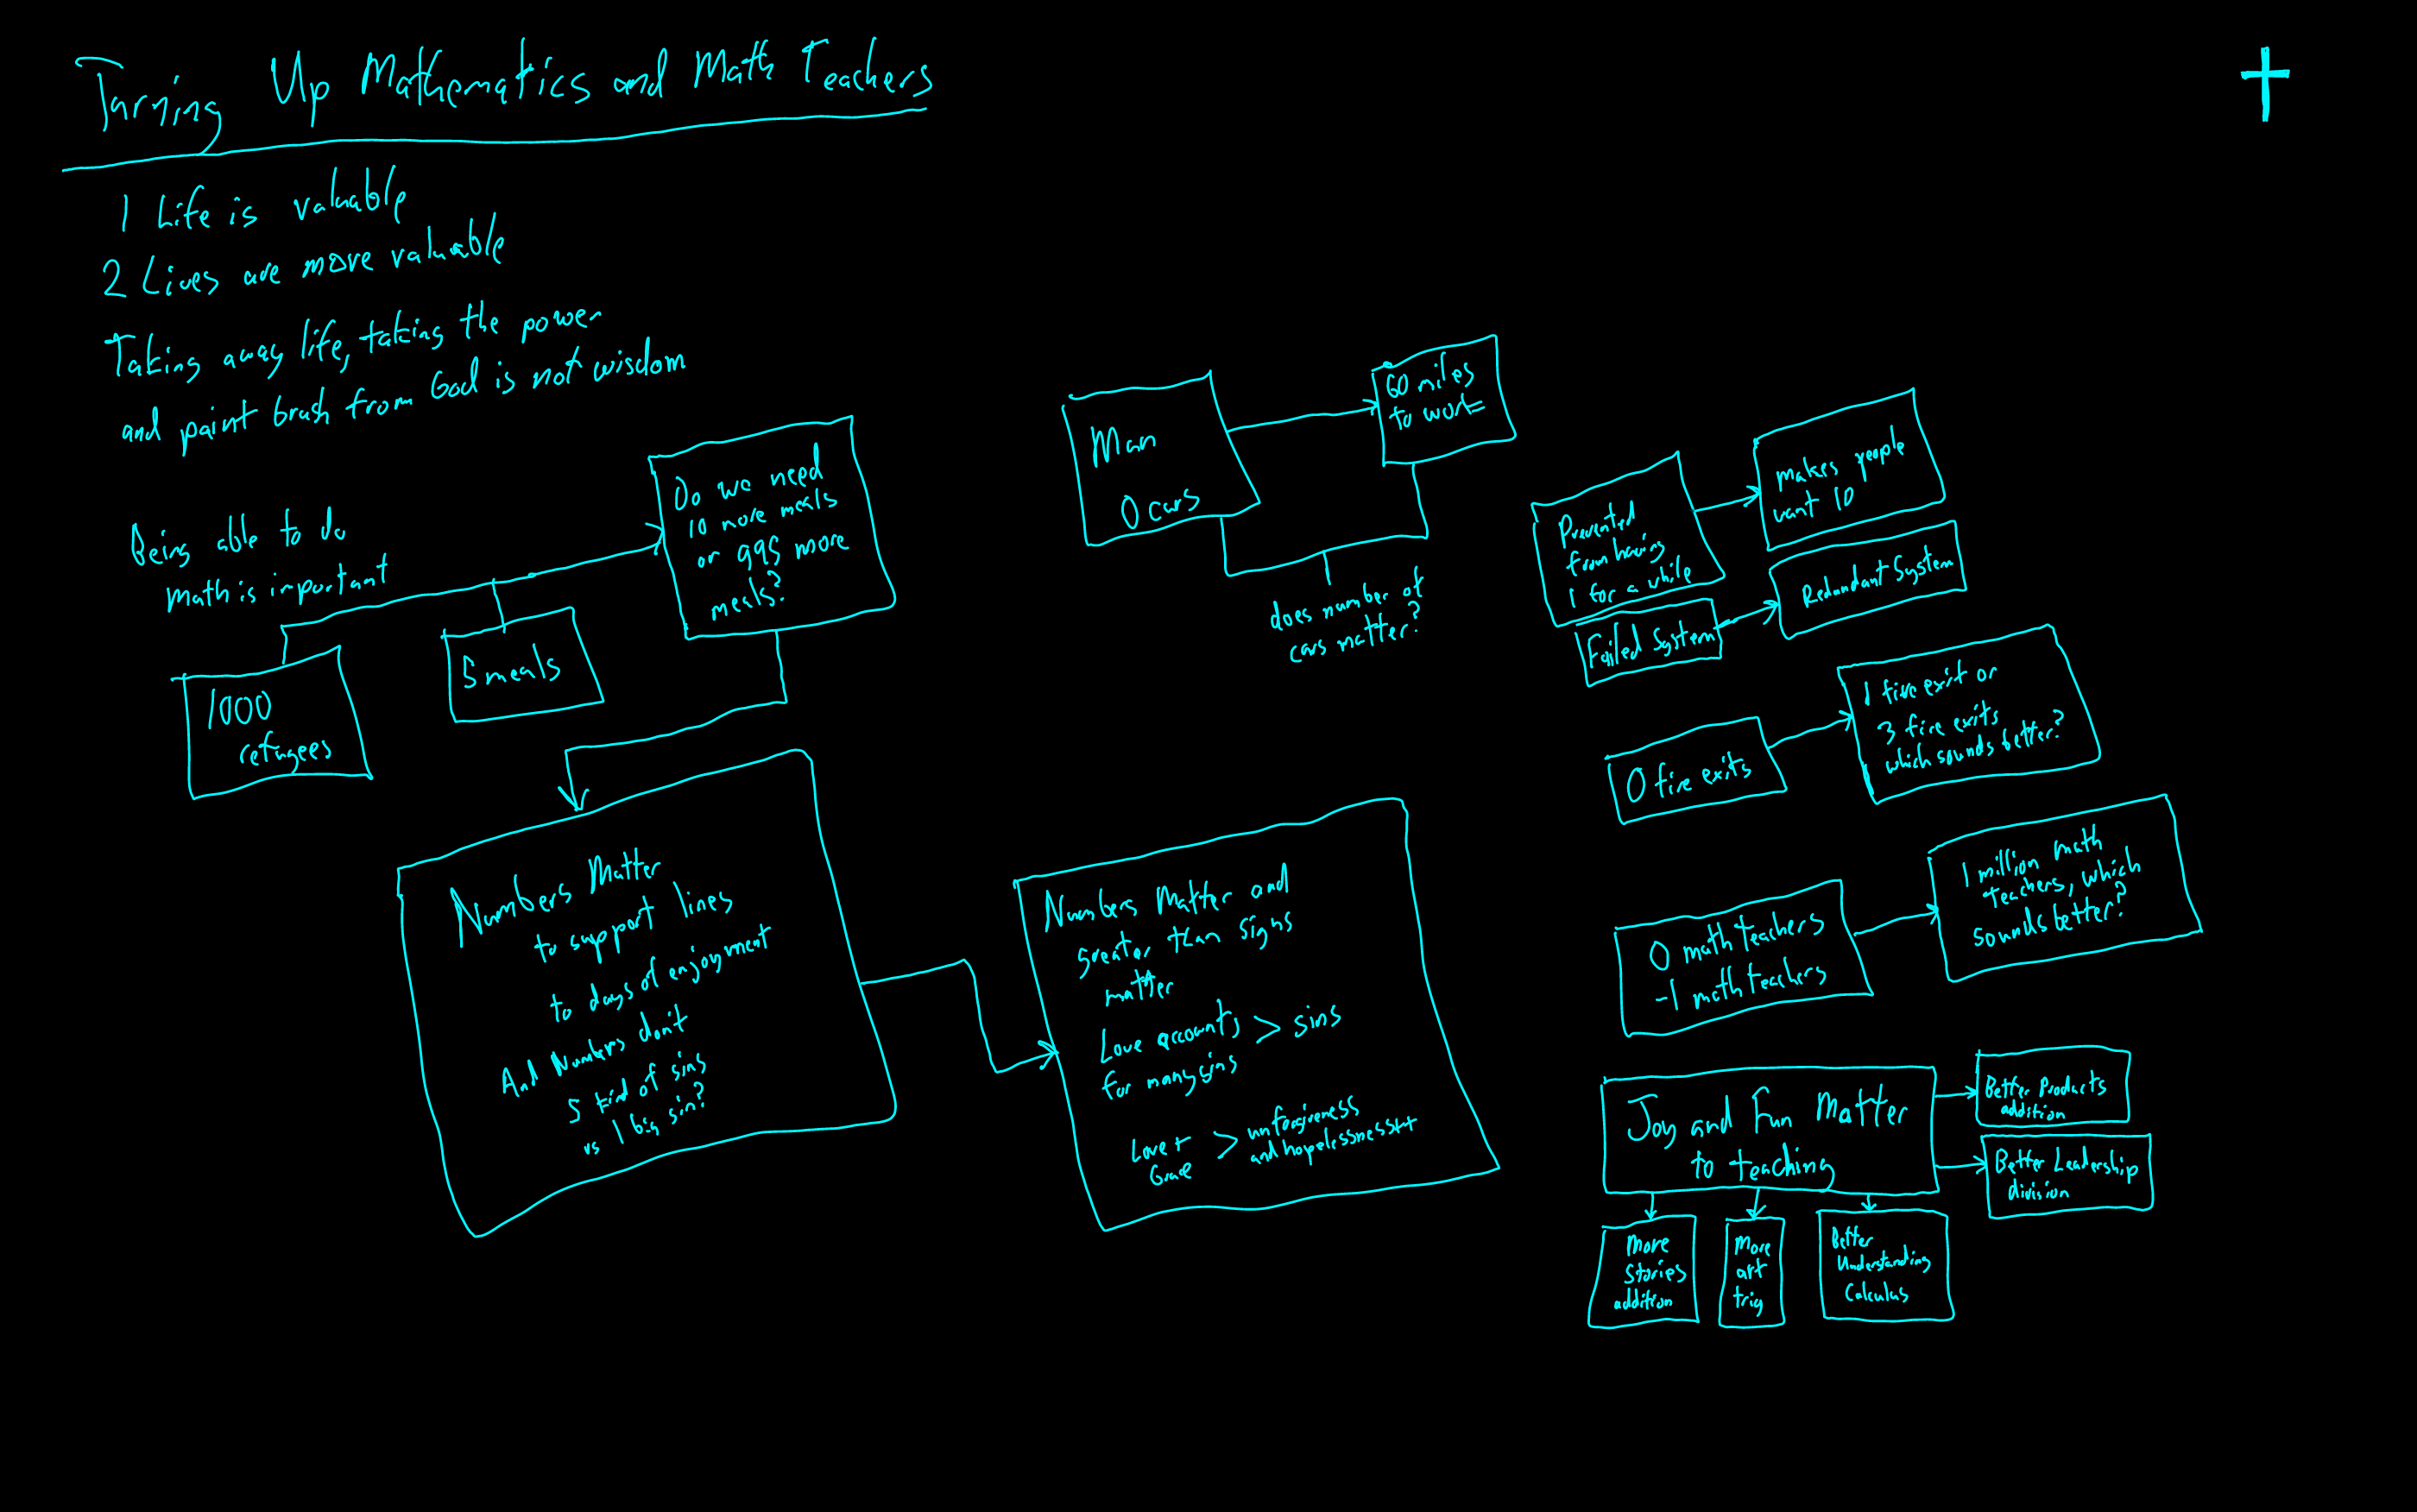 Turning Up Mathematics and Math Teachers
1 Life is valuable
2 Lives are more valuable
Taking away life, taking the power
and paint brush from God is not wisdom
Being able to do
math is important
1000
refugees
5 meals
Do we need
10 more meals
or 995 more
meals?
Numbers Matter
to support lines
to days of enjoyment
And Numbers don't
5 kind of sins
vs 1 big sin?
Numbers Matter and
greater than signs
matter
Love accounts > sins
for many sins
Love + > unforgiveness
Grace and hopelessness
Man
0 cars
60 miles
to work
does number of
cars matter?
Prevented
from having
1 for a while
makes people
want 10
Failed System
Redundant System
0 fire exits
1 fire exit or
3 fire exits
which sounds better?
0 math teachers
-1 math teachers
1 million math
teachers, which
sounds better?
Joy and Fun Matter
to teaching
Better Products
addition
Better Leadership
division
More
Stories
addition
More
art
trig
Better
Understanding
Calculus